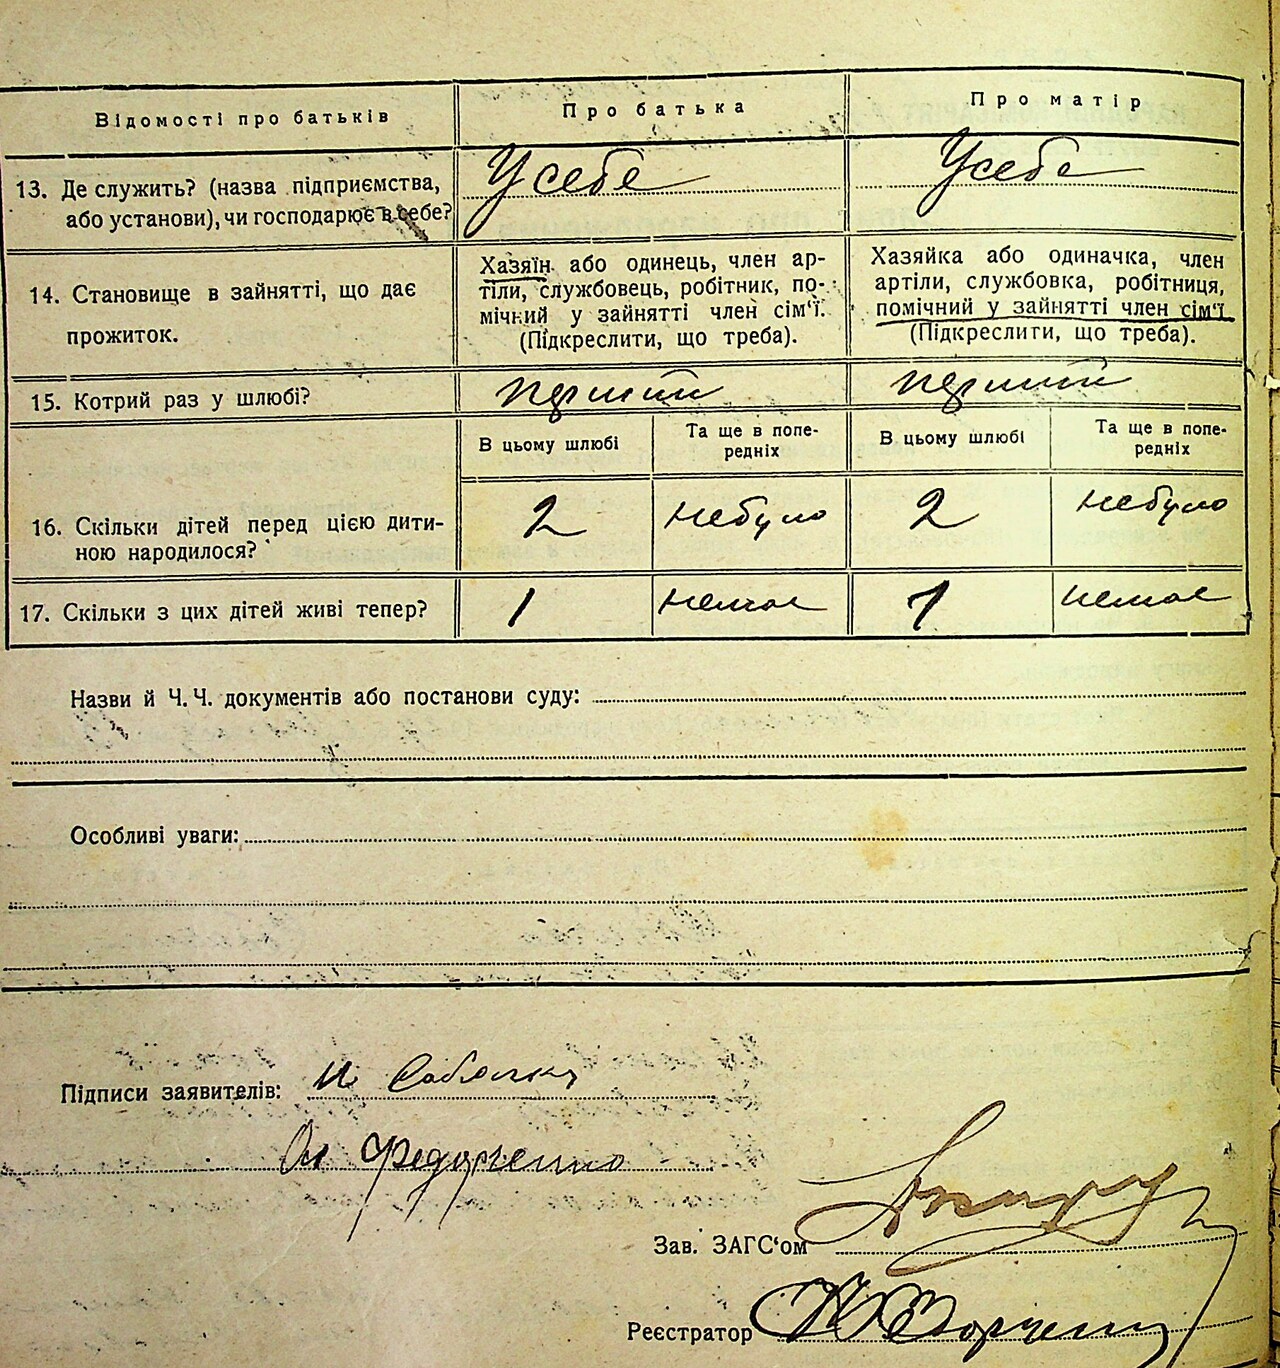 Відомості про батьків Про батька Про матір
13. Де служить? (назва підприємства, або установи), чи господарює в себе? У себе У себе
14. Становище в зайнятті, що дає прожиток.
Хазяїн або одинець, член ар-
тіли, службовець, робітник, по-
мічний у зайнятті член сім'ї.
(Підкреслити, що треба).
Хазяйка або одиначка, член
артіли, службовка, робітниця,
помічний у зайнятті член сім'ї
(Підкреслити, що треба).
15. Котрий раз у шлюбі? перший перший
В цьому шлюбі Та ще в попе-
редніх В цьому шлюбі Та ще в попе-
редніх
16. Скільки дітей перед цією дити-
ною народилося? 2 небуло 2 небуло
17. Скільки з цих дітей живі тепер? 1 немає 1 немає
Назви й Ч.Ч. документів або постанови суду:
Особливі уваги:
Підписи заявителів:
Ол Федорченко
Зав. ЗАГС'ом
Реєстратор